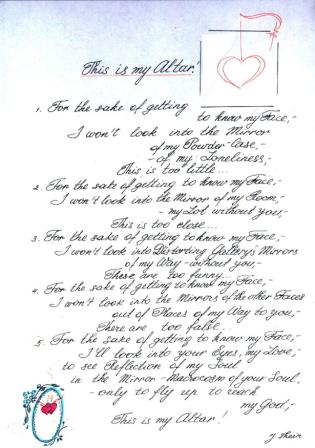 This is my Altar!
1. For the sake of getting
to know my Face,-
I won't look into the Mirror
of my Powder-Case,-
- of my Loneliness,-
This is too little...
2. For the sake of getting to know my Face,-
I won't look into the Mirror of my Room,-
- my Lot without you,-
This is too close...
3. For the sake of getting to know my Face,-
I won't look into Distorting Gallery's Mirrors
of my Way - without you,-
These are too funny...
4. For the sake of getting to know my Face,-
I won't look into the Mirrors of the other Faces
out of Places of my Way to you,-
There are too false...
5. For the sake of getting to know my Face,-
I'll look into your Eyes, my Love,-
to see Reflection of my Soul
in the Mirror - Macrocosm of your Soul,
- only to fly up to reach
my God,-
This is my Altar!